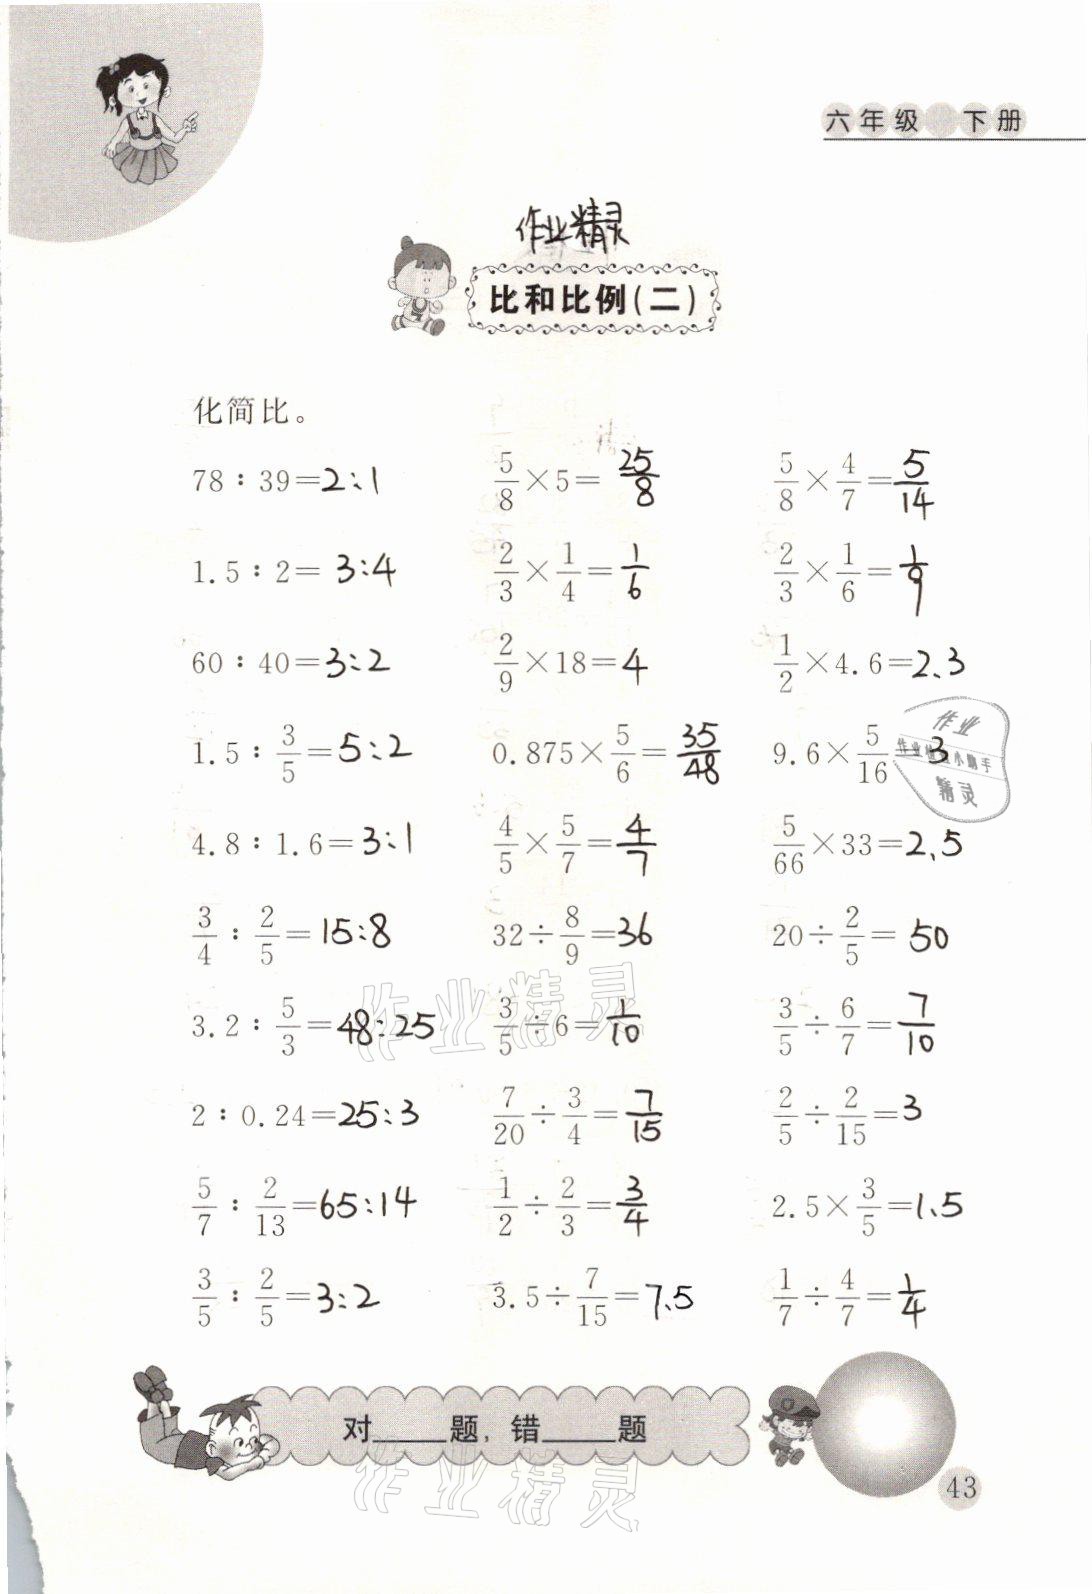 六年级 下册
作业精灵
比和比例(二)
化简比。
78∶39=2:1 5/8×5=25/8 5/8×4/7=5/14
1.5∶2=3:4 2/3×1/4=1/6 2/3×1/6=1/9
60∶40=3:2 2/9×18=4 1/2×4.6=2.3
1.5∶3/5=5:2 0.875×5/6=35/48 9.6×5/16=3
4.8∶1.6=3:1 4/5×5/7=4/7 5/66×33=2.5
3/4∶2/5=15:8 32÷8/9=36 20÷2/5=50
3.2∶5/3=48:25 3/5÷6=1/10 3/5÷6/7=7/10
2∶0.24=25:3 7/20÷3/4=7/15 2/5÷2/15=3
5/7∶2/13=65:14 1/2÷2/3=3/4 2.5×3/5=1.5
3/5∶2/5=3:2 3.5÷7/15=7.5 1/7÷4/7=1/4
作业
精灵
作业精灵
对____题,错____题
作业精灵
43